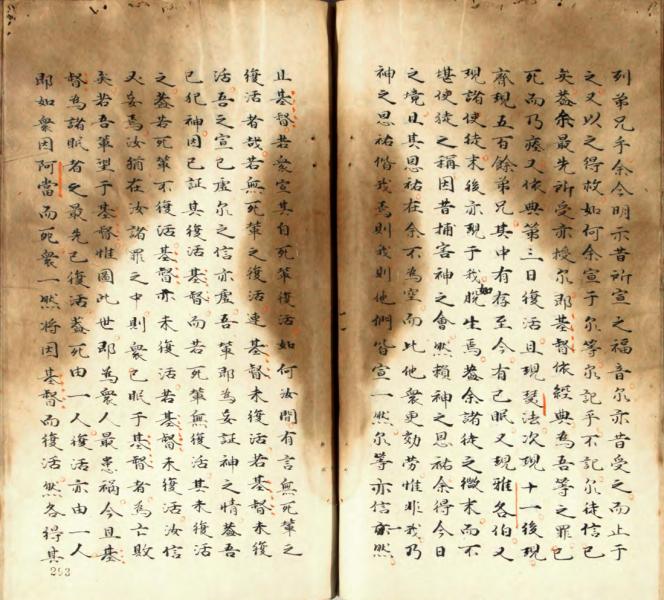 列弟兄乎余今明示昔所宣之福音尔亦昔受之而止于
之又以之得救如何余宣于尔等尔記乎不記尔徒信已
矣蓋余最先所受亦授尔即基督依經典為吾等之罪已
死而乃瘞又依典第三日復活且現瑟法次現十一後現
齊現五百餘弟兄其中有存至今有已眠又現雅各伯又
現諸使徒末後亦現于我如脫生焉蓋余諸徒之微末而不
堪使徒之稱因昔捕害神之會然賴神之恩祐余得今日
之境且其恩祐在余不為空而比他衆更効勞惟非我乃
神之恩祐偕我焉則我則他們皆宣一然尔等亦信亦一然
止基督若衆宣其自死輩復活如何汝間有言無死輩之
復活者哉若無死輩之復活連基督未復活若基督未復
活吾之宣已虛尔之信亦虛吾輩即為妄証神之情蓋吾
已犯神因已証其復活基督而若死輩無復活其未復活
之蓋若死輩不復活基督亦未復活若基督未復活汝信
又妄焉汝猶在汝諸罪之中則衆已眠于基督者為亡敗
矣若吾輩望于基督惟圖此世即為衆人最患禍今且基
督為諸眠者之最先已復活蓋死由一人復活亦由一人
即如衆因阿當而死衆一然将因基督而復活然各得其
293